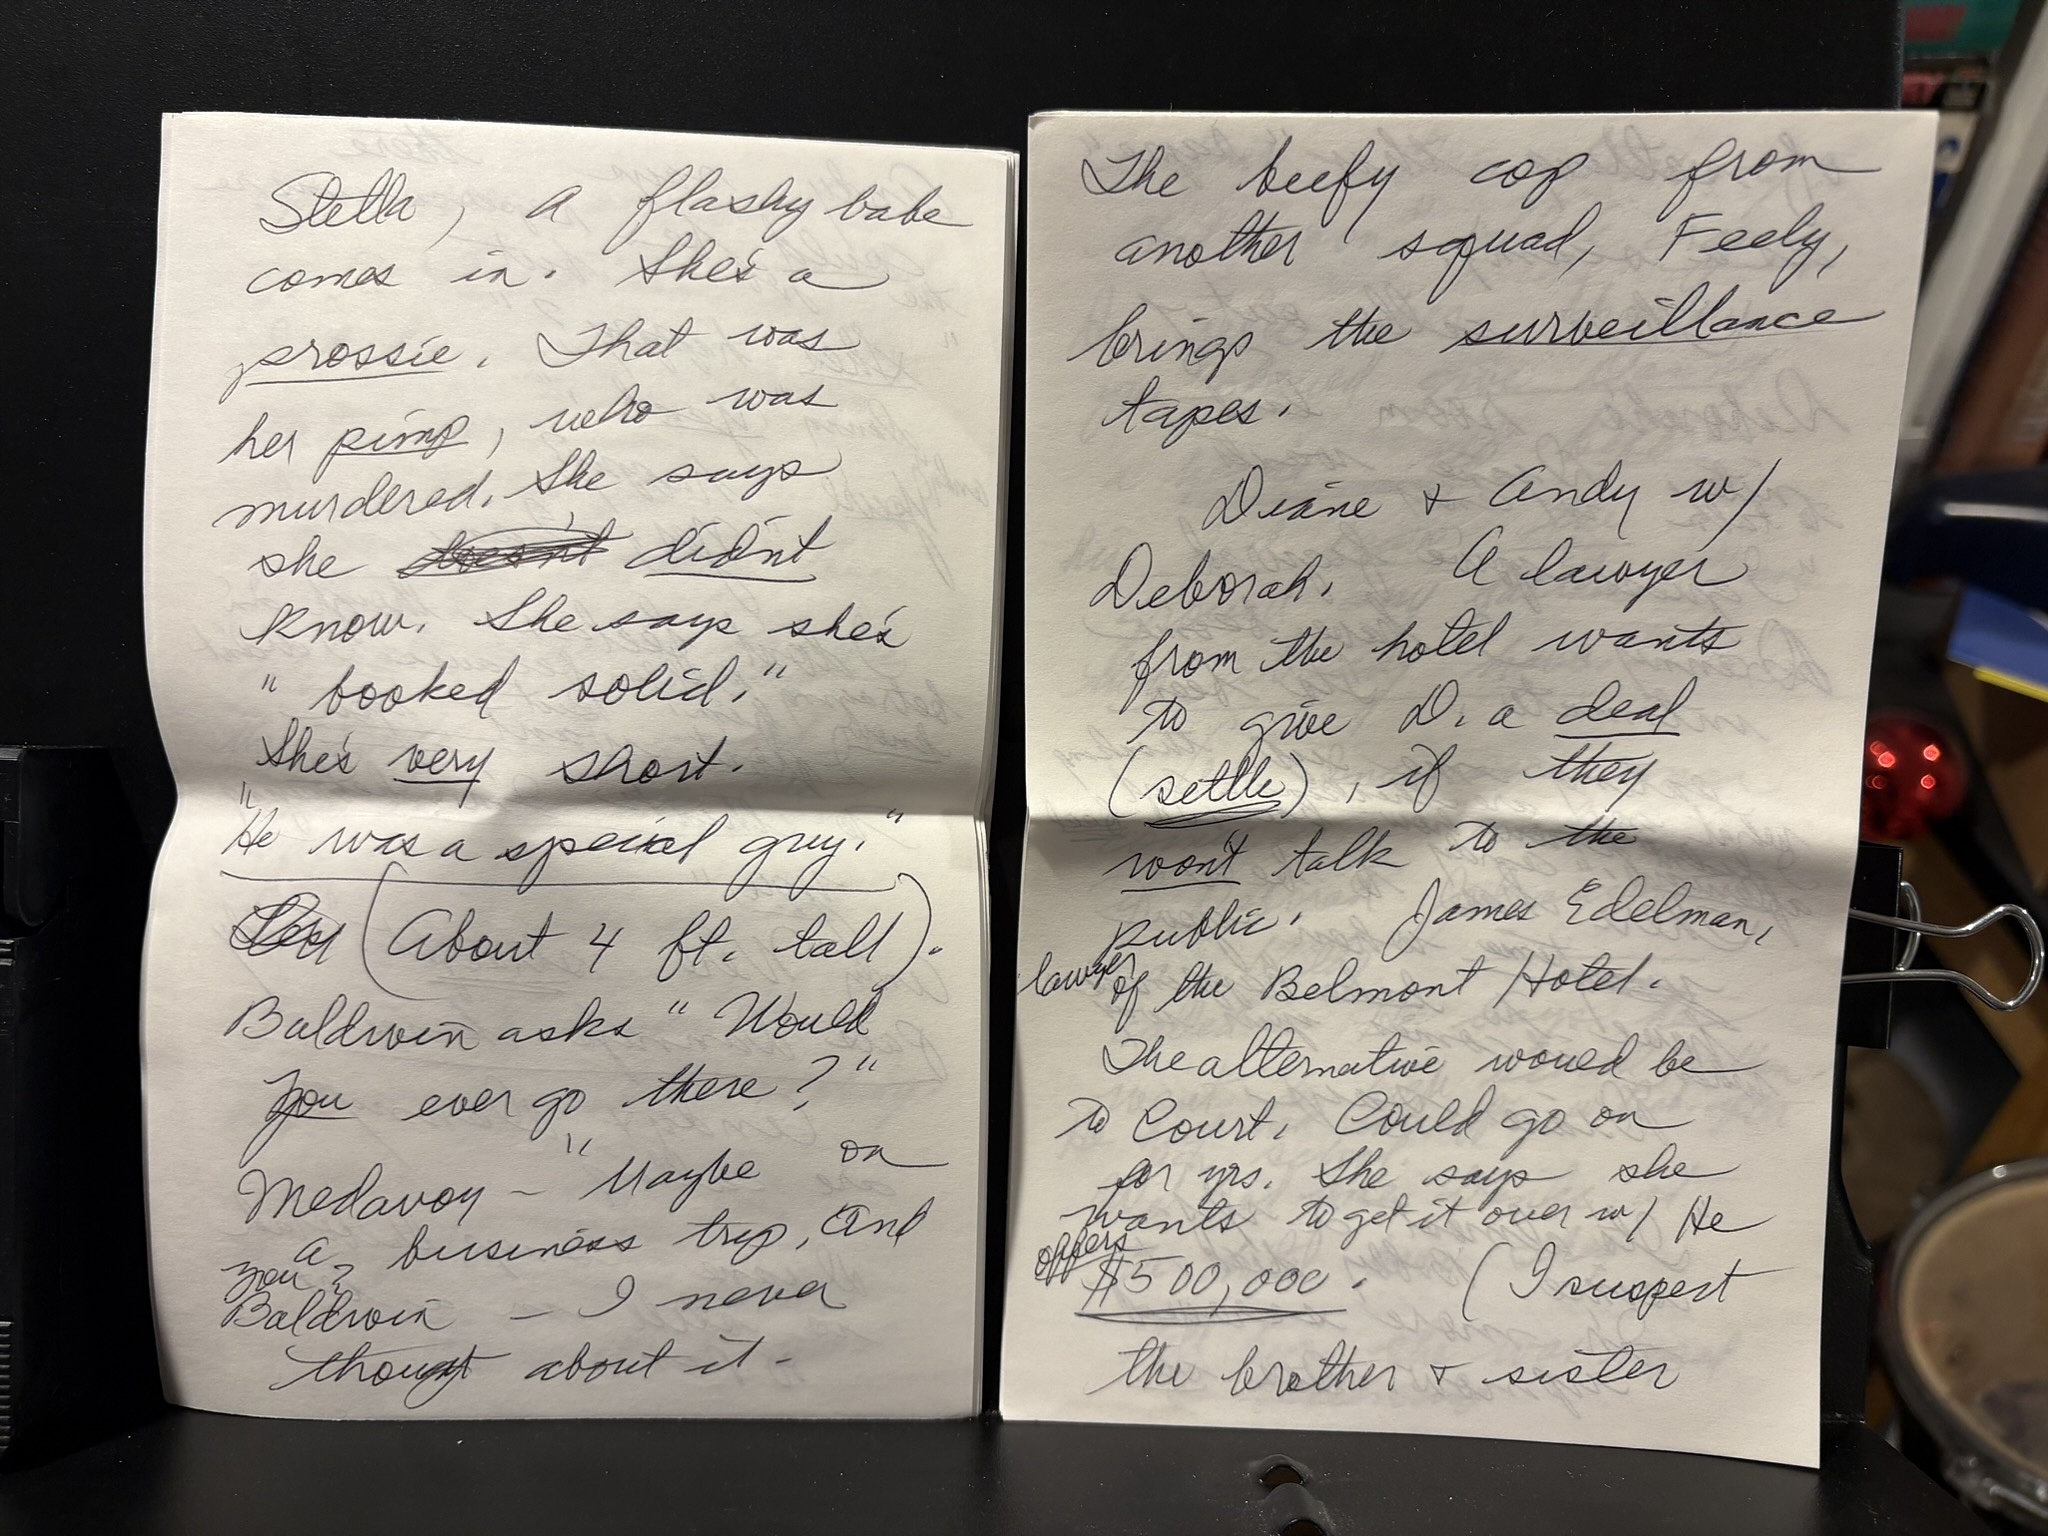 Stella, a flashy babe
comes in. She's a
prossie. That was
her pimp, who was
murdered. She says
she doesn't didn't
know. She says she's
"booked solid."
She's very short.
"He was a special guy."
(About 4 ft. tall).
Baldwin asks "Would
you ever go there?"
Medavoy – "Maybe on
a business trip, and
you?
Baldwin – I never
thought about it.
The beefy cop from
another squad, Feely,
brings the surveillance
tapes.
Diane & Andy w/
Deborah. A lawyer
from the hotel wants
to give D. a deal
(settle), if they
won't talk to the
public. James Edelman,
lawyer of the Belmont Hotel.
The alternative would be
to Court. Could go on
for yrs. She says she
wants to get it over w/ He
offers
$500,000. (I suspect
the brother & sister